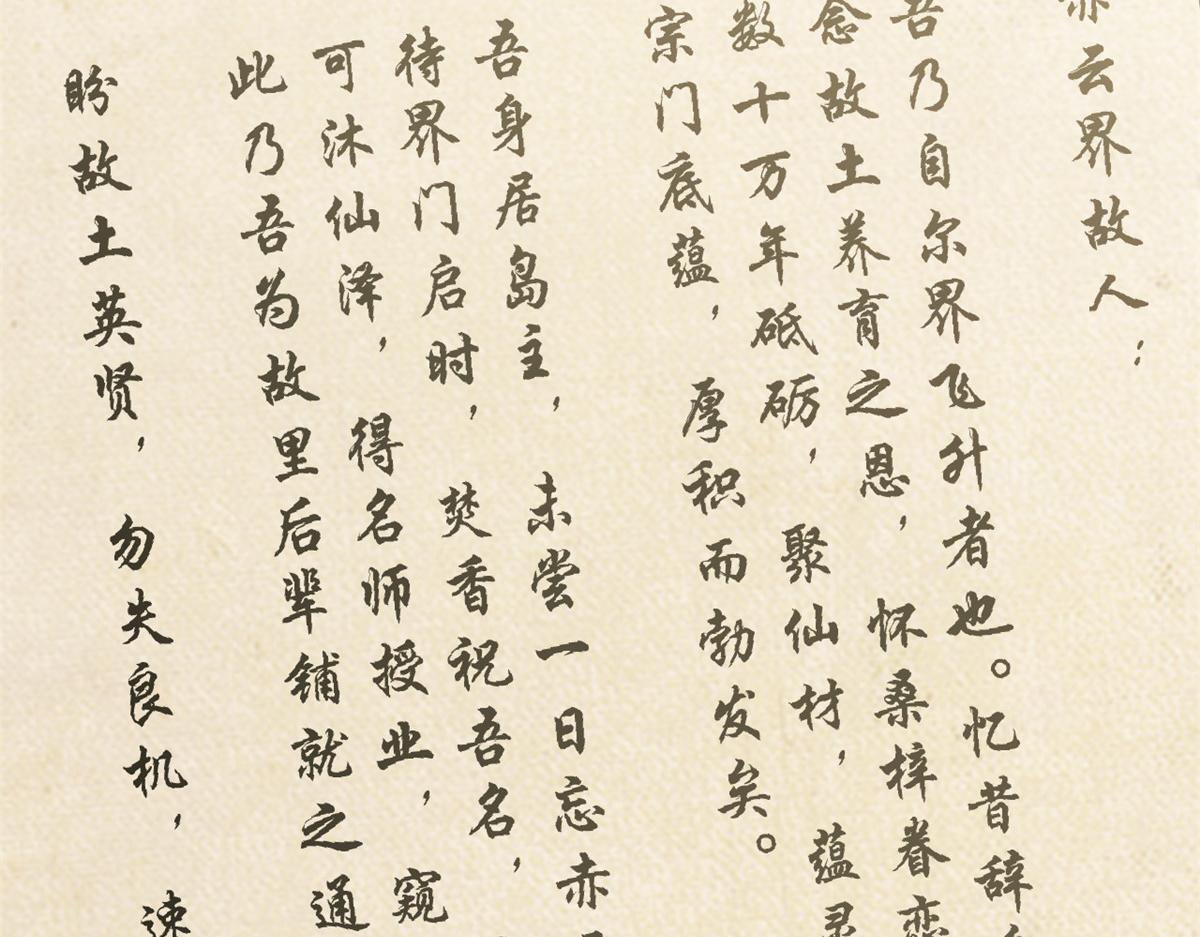 赤云界故人：
吾乃自尔界飞升者也。忆昔辞
念故土养育之恩，怀桑梓眷恋
数十万年砥砺，聚仙材，蕴灵
宗门底蕴，厚积而勃发矣。
吾身居岛主，未尝一日忘赤
待界门启时，焚香祝吾名，
可沐仙泽，得名师授业，窥
此乃吾为故里后辈铺就之通
盼故土英贤，勿失良机，速